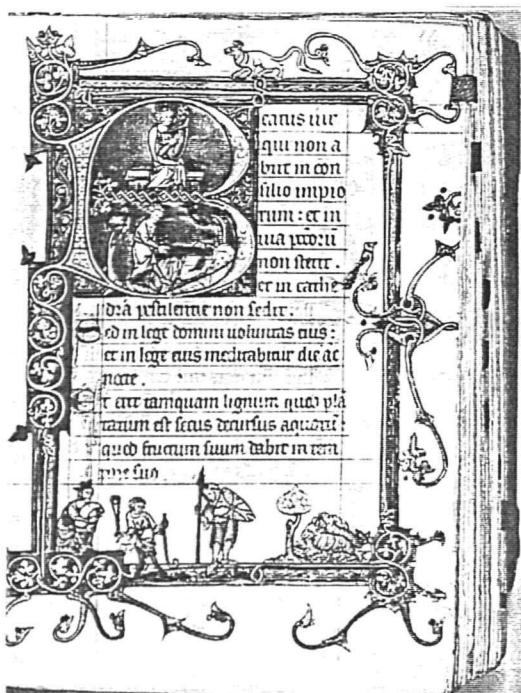 Beatus uir
qui non a
biit in con
silio impio
rum : et in
uia pccōrū
non stetit .
et in cathe
dra pestilentie non sedit .
Sed in lege domini uoluntas eius :
et in lege eius meditabitur die ac
nocte .
Et erit tamquam lignum quod plā
tatum est secus decursus aquarū :
quod fructum suum dabit in tem
pore suo .